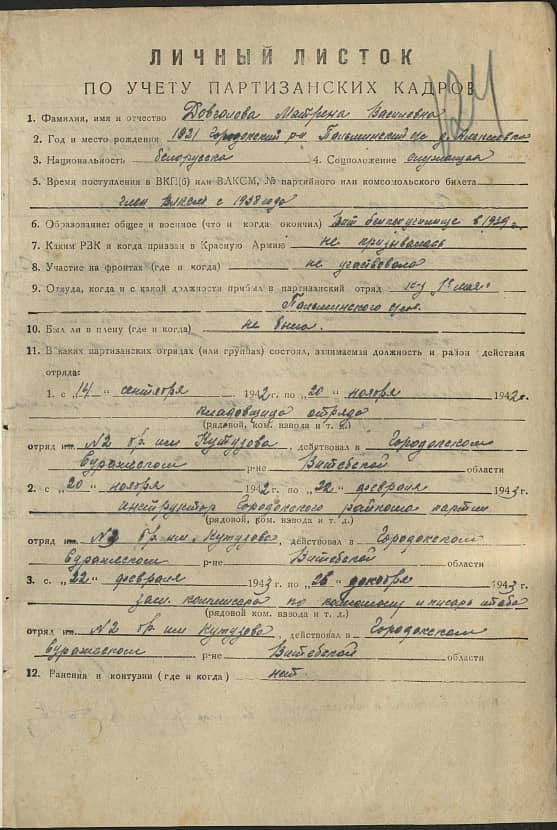 ЛИЧНЫЙ ЛИСТОК
ПО УЧЕТУ ПАРТИЗАНСКИХ КАДРОВ
1. Фамилия, имя и отчество Довгалева Матрена Васильевна
2. Год и место рождения 1921 Городокский р-н Пальминский с/с д.
3. Национальность белорусска 4. Соцположение служащая
5. Время поступления в ВКП(б) или ВЛКСМ, № партийного или комсомольского билета
член ВЛКСМ с 1938 года
6. Образование: общее и военное (что и когда окончил) в 1939 г.
7. Каким РВК и когда призван в Красную Армию не призывалась
8. Участие на фронтах (где и когда) не участвовала
9. Откуда, когда и с какой должности прибыл в партизанский отряд
Пальминского
10. Был ли в плену (где и когда) не была.
11. В каких партизанских отрядах (или группах) состоял, занимаемая должность и район действия
отряда:
1. с „14" сентября 1942 г. по „20" ноября 1942 г.
кладовщица отряда
(рядовой, ком. взвода и т. д.)
отряд им. №2 бр. им Кутузова, действовал в Городокском
Суражском р-не Витебской области
2. с „20" ноября 1942 г. по „22" февраля 1943 г.
инструктор Городокского райкома партии
(рядовой, ком. взвода и т. д.)
отряд им. №3 бр. им. Кутузова, действовал в Городокском
Суражском р-не Витебской области
3. с „22" февраля 1943 г. по „26" октября 1943 г.
зам. комиссара по комсомолу и писарь штаба
(рядовой, ком. взвода и т. д.)
отряд им. №2 бр. им Кутузова, действовал в Городокском
Суражском р-не Витебской области
12. Ранения и контузии (где и когда) нет.